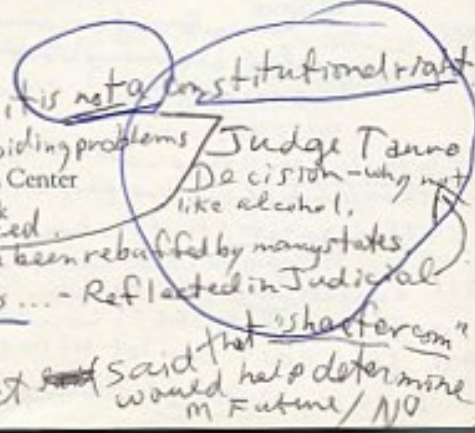 it is not a constitutional right
iding problems
Judge Tauro
Center
Decision - why not
like alcohol,
ed.
been rebuffed by many states
s ... - Reflected in Judicial
said that "shaefer com"
would help determine
M Future / NO